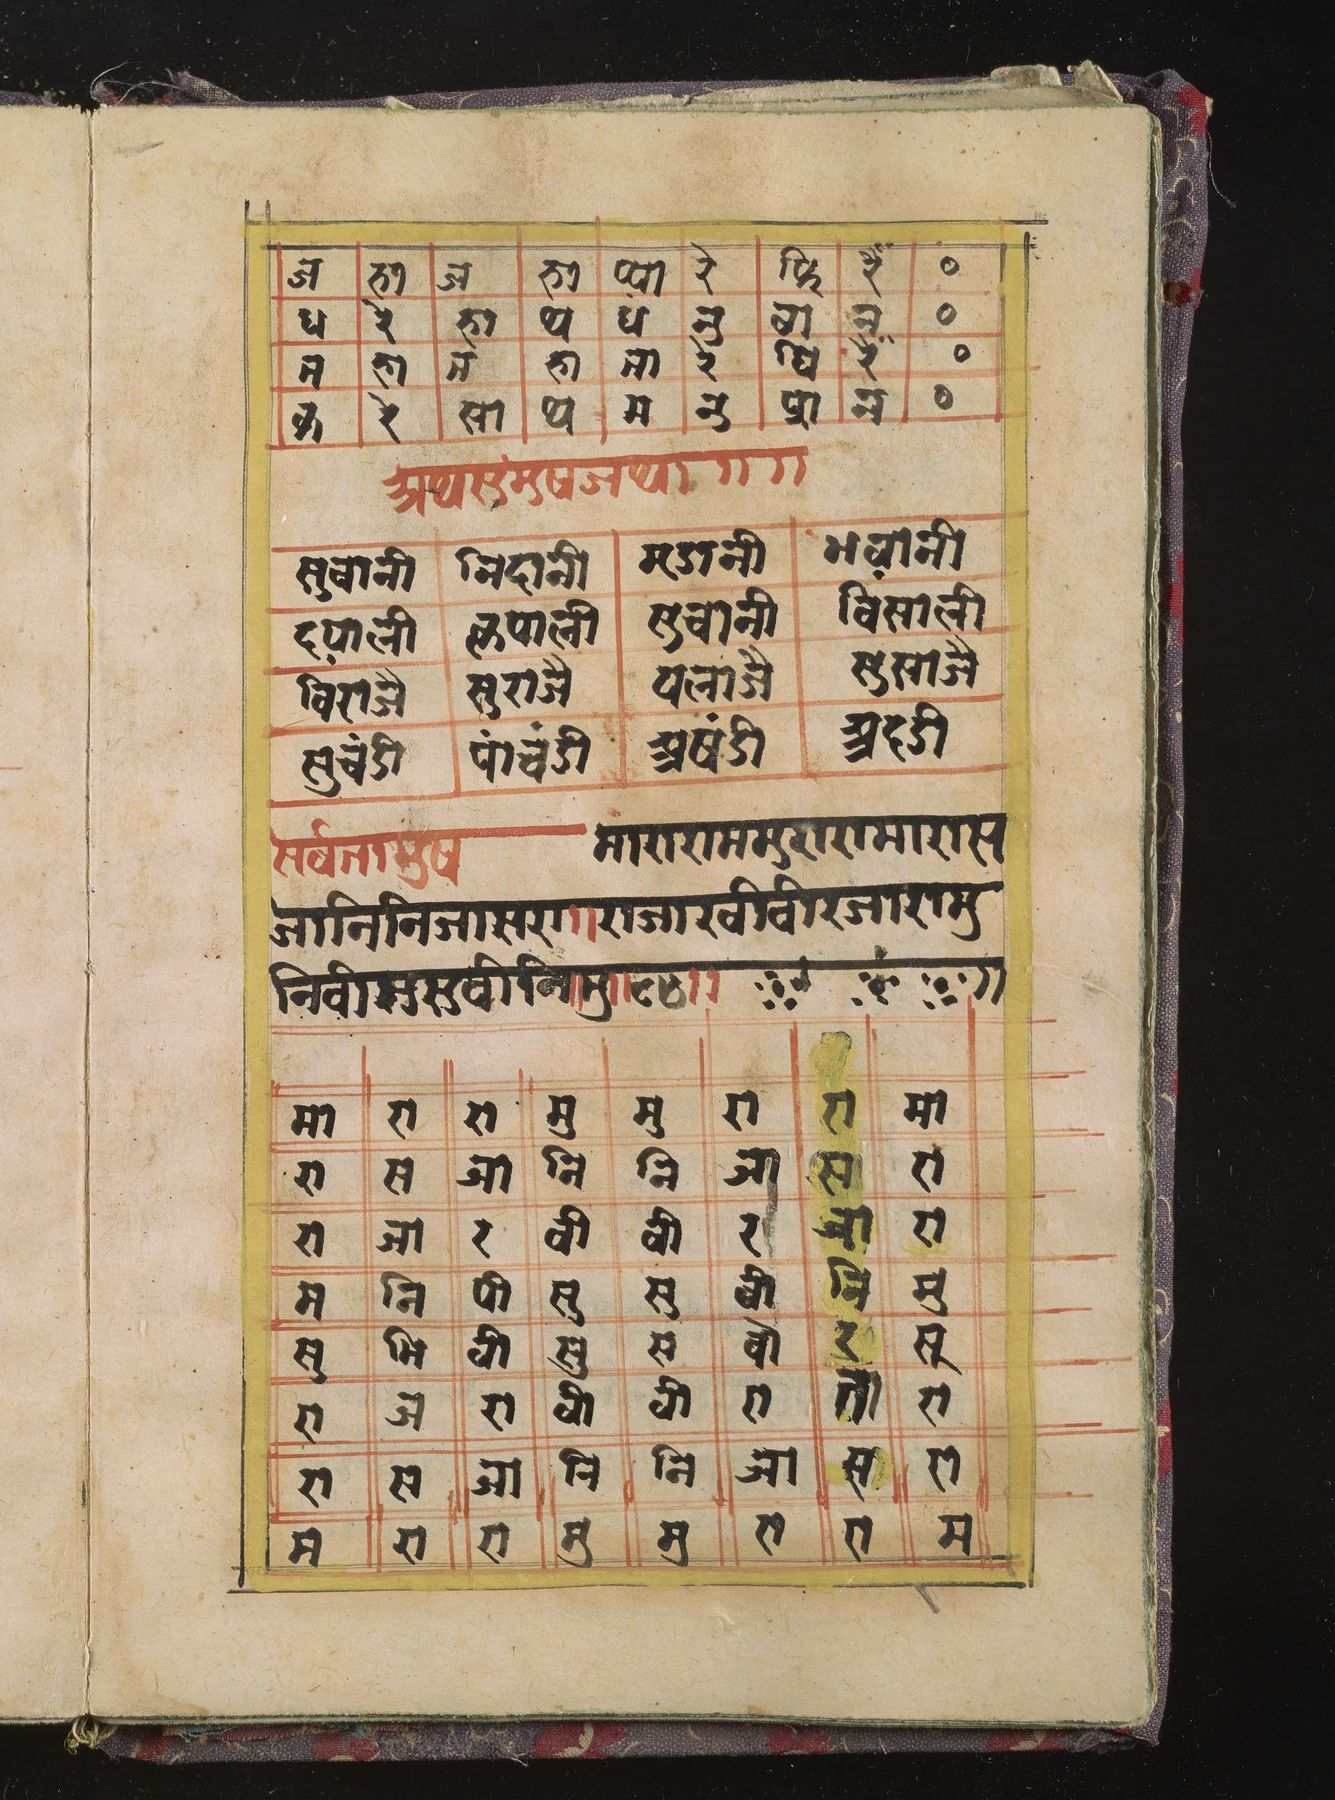 ज हा ज हा प्या रे फि रैं ०
ध रे हा थ धं नु वा न ०
न हा न हा ना रे घि रैं ०
क रे सा थ म नु पा न ०
अथसुमुषजथा ॥ ॥
सुवानी निदानी मडानी भवानी
दयाली कपाली सुचानी विसाली
विराजै सुराजै यलाजै सुसाजै
सुचंडी पांचंडी अषंडी अदडी
सर्वतामुष मारारामममुरारामारास
जानिनिजासरा॥राजारवीवीरजारामु
निवीसुसुवीनिमु॥८७॥
मा रा रा मु मु रा रा मा
रा स जा नि नि जा स रा
रा जा र वी वी र जा रा
म नि वी सु सु वी नि मु
सु नि वी सु स वी र सू
रा ज रा वी वी रा ता रा
रा स जा नि नि जा स रा
म रा रा मु मु रा रा म